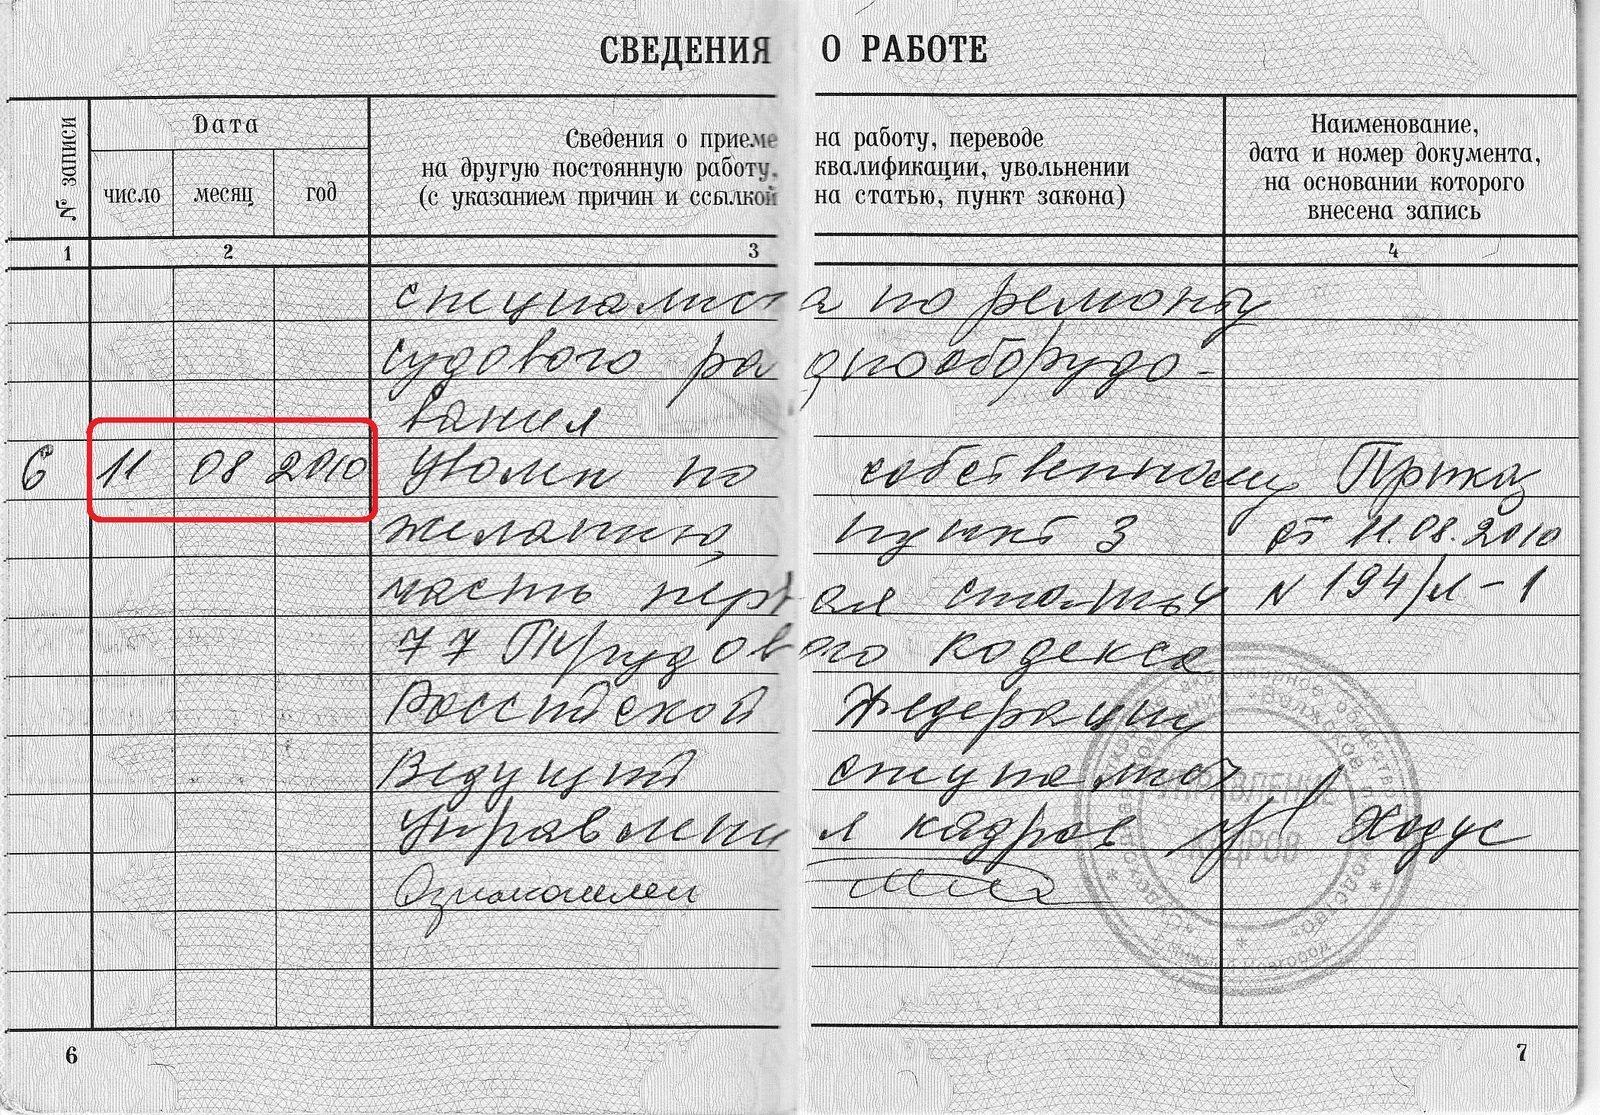 СВЕДЕНИЯ О РАБОТЕ
№ записи
Дата
число месяц год
Сведения о приеме на работу, переводе
на другую постоянную работу, квалификации, увольнении
(с указанием причин и ссылкой на статью, пункт закона)
Наименование,
дата и номер документа,
на основании которого
внесена запись
1 2 3 4
специалиста по ремонту
судового радиооборудо-
вания
6 11 08 2010 Уволен по собственному Приказ
желанию, пункт 3 от 11.08.2010
часть первая статьи N 194/л-1
77 Трудового кодекса
Российской Федерации
Ведущий специалист
Управления кадров Ходус
Ознакомлен
УПРАВЛЕНИЕ
КАДРОВ
акционерное общество
"Волжское пароходство"
г. Нижний Новгород
6 7